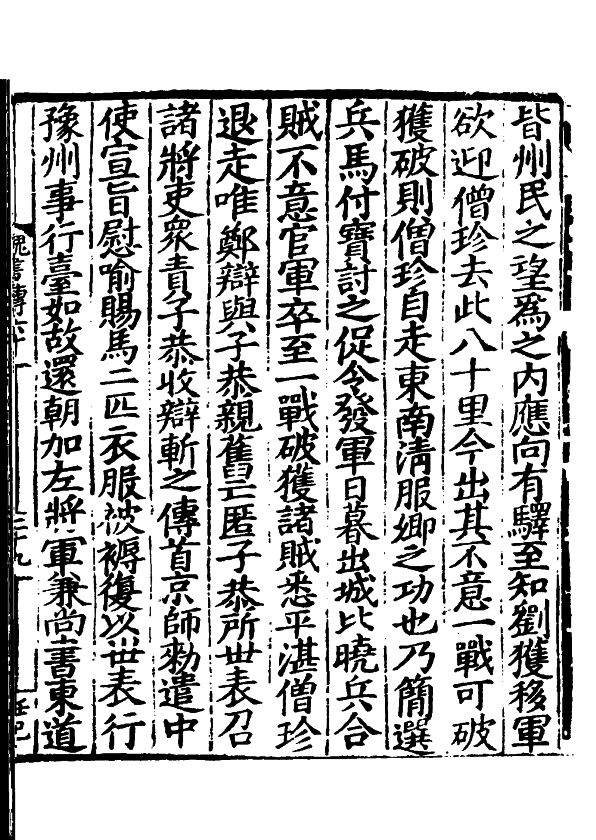 皆州民之望爲之内應向有驛至知劉獲移軍
欲迎僧珍去此八十里今出其不意一戰可破
獲破則僧珍自走東南清服卿之功也乃簡選
兵馬付寶討之促令發軍日暮出城比曉兵合
賊不意官軍卒至一戰破獲諸賊悉平湛僧珍
退走唯鄭辯與子恭親舊亡匿子恭所世表召
諸將吏衆責子恭收辯斬之傳首京師勑遣中
使宣旨慰喻賜馬二匹衣服被褥復以世表行
豫州事行臺如故還朝加左將軍兼尚書東道
魏書傳六十
二十九